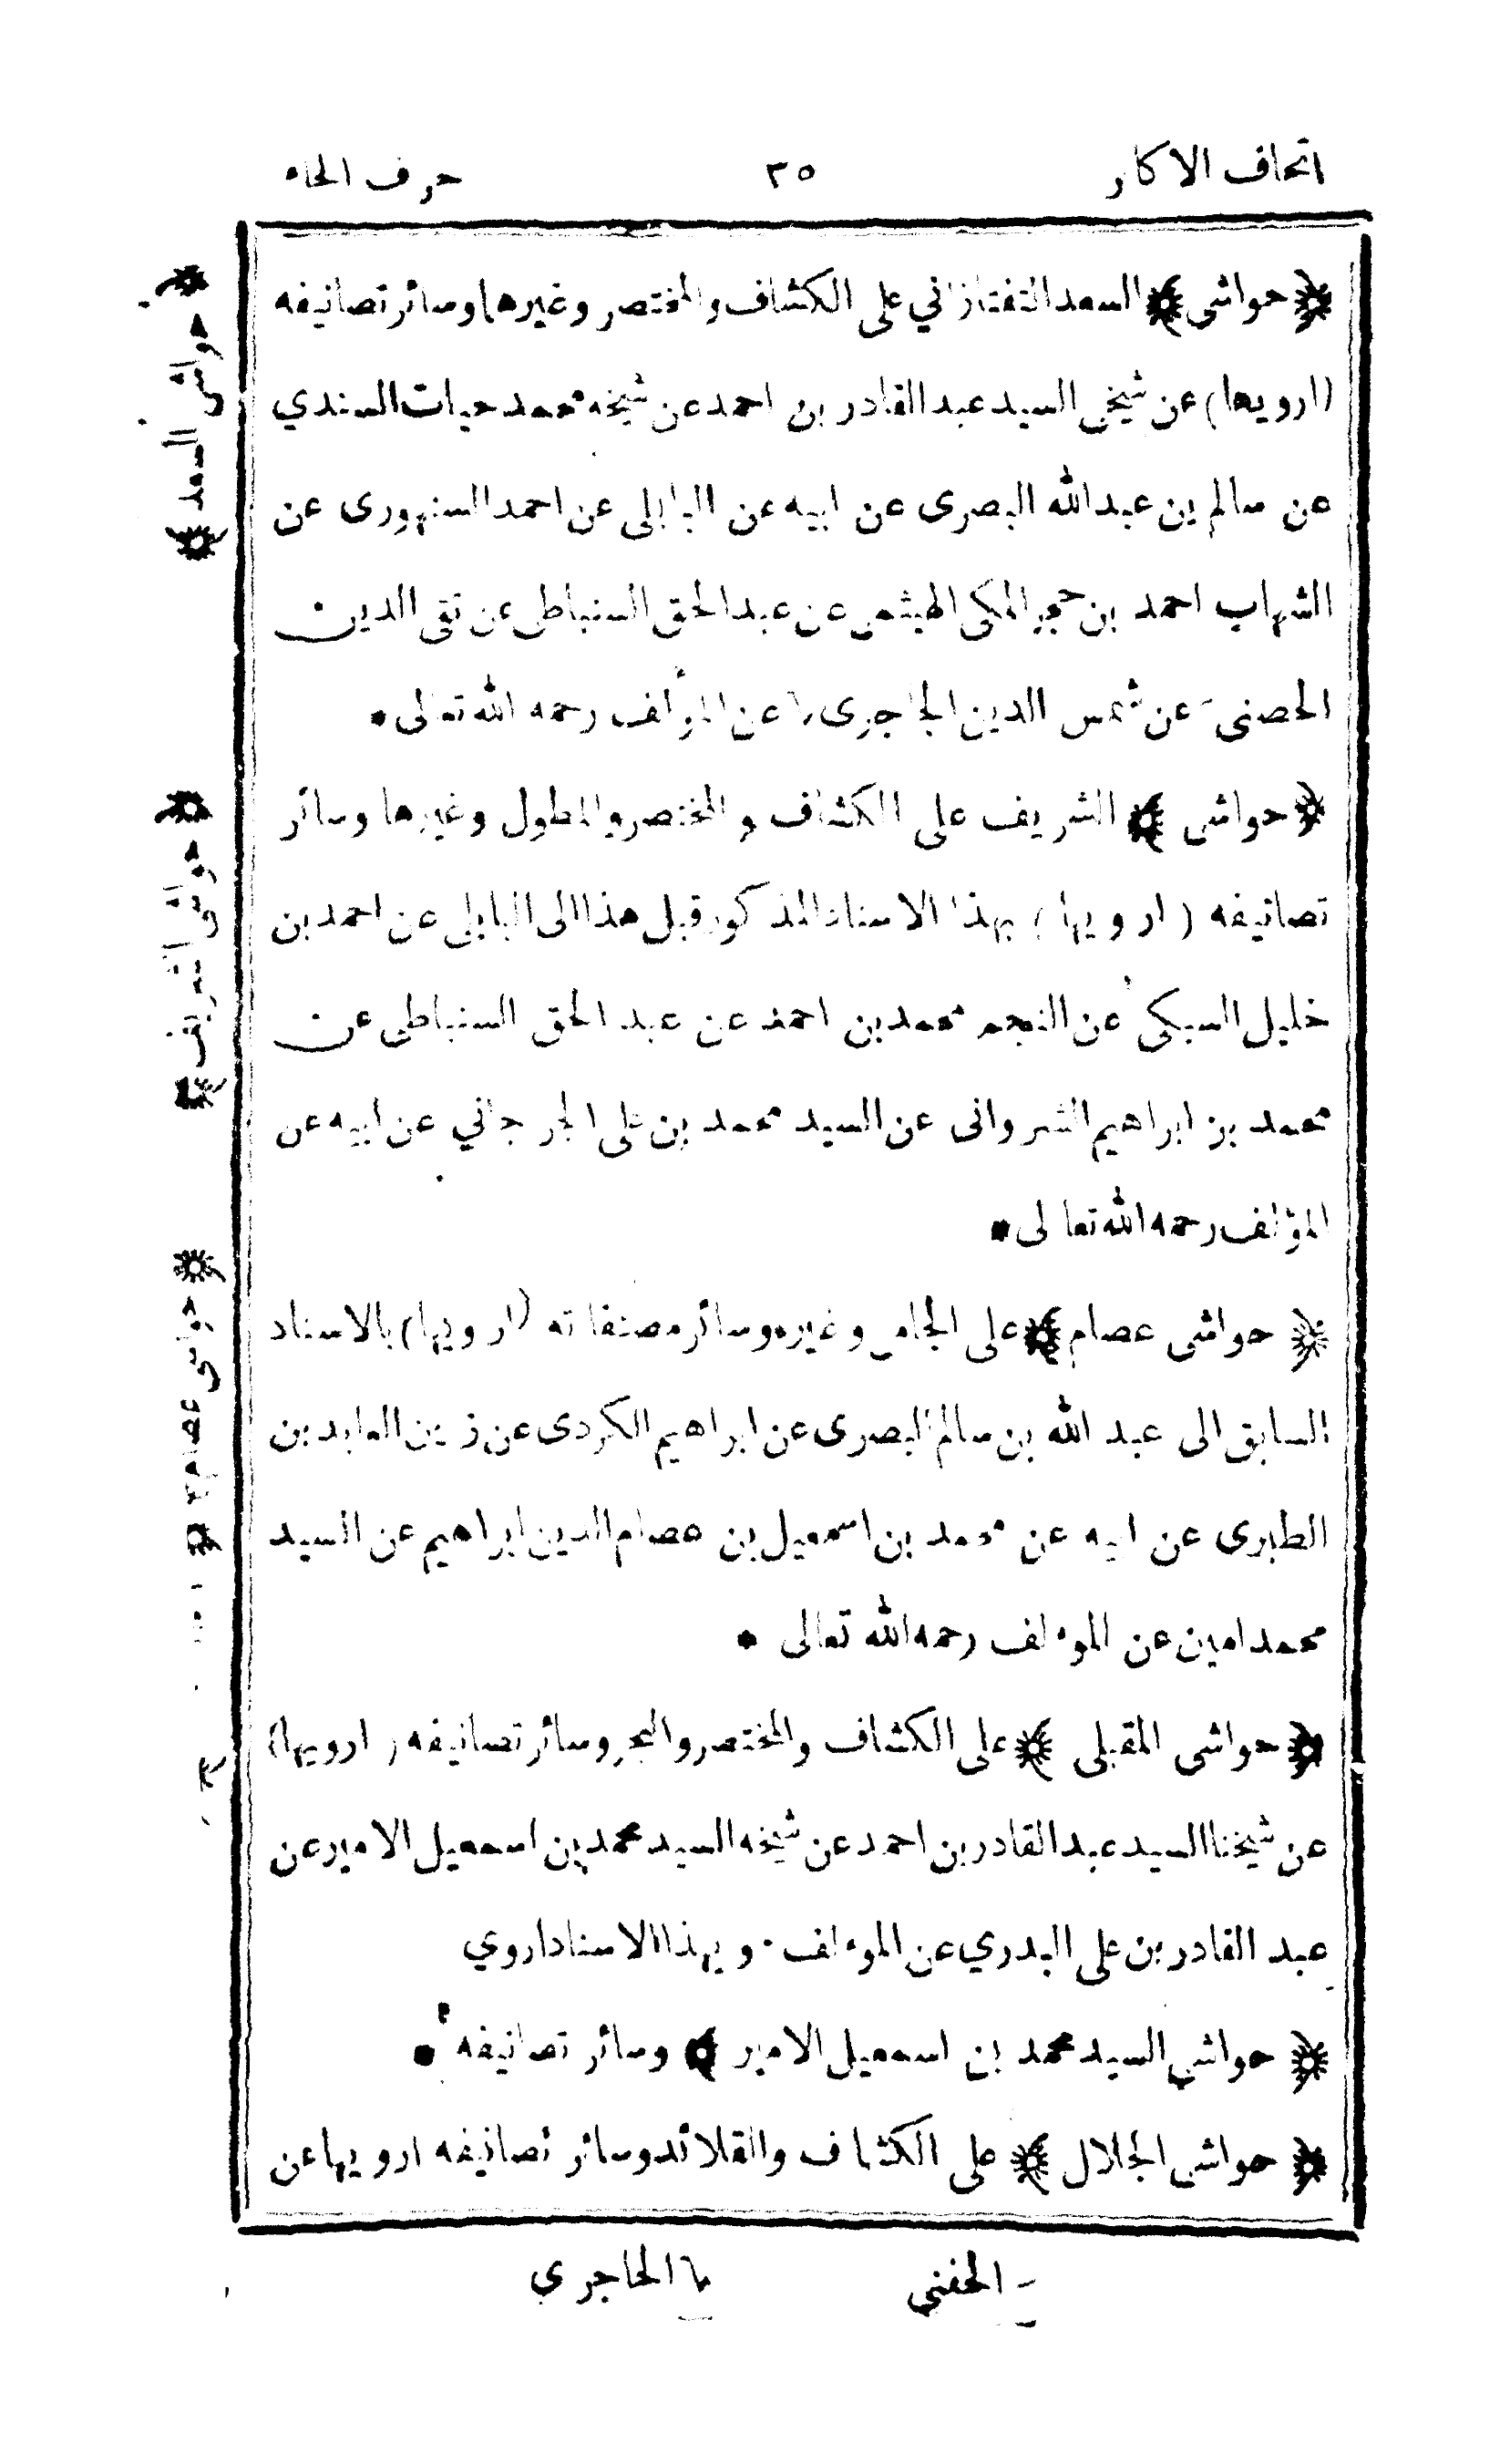 اتحاف الاكابر
٣٥
حرف الحاء
﴿ حواشى ﴾ السعد التفتازاني على الكشاف والمختصر وغيرها وسائر تصانيفه
(ارويها) عن شيخى السيد عبد القادر بن احمد عن شيخه محمد حيات السندي
عن سالم بن عبدالله البصرى عن ابيه عن البابلى عن احمد السنهورى عن
الشهاب احمد بن حجر المكى الهيثمى عن عبد الحق السنباطى عن تقى الدين
الحصنى عن شمس الدين الجاجرى عن المؤلف رحمه الله تعالى •
﴿ حواشى ﴾ الشريف على الكشاف والمختصر والمطول وغيرها وسائر
تصانيفه ( ارويها ) بهذا الاسناد المذكور قبل هذا الى البابلى عن احمد بن
خليل السبكى عن النجم محمد بن احمد عن عبد الحق السنباطى عن
محمد بن ابراهيم الشروانى عن السيد محمد بن على الجرجاني عن ابيه عن
المؤلف رحمه الله تعالى •
﴿ حواشى عصام ﴾ على الجامى وغيره وسائر مصنفاته (ارويها) بالاسناد
السابق الى عبد الله بن سالم البصرى عن ابراهيم الكردى عن زين العابد بن
الطبرى عن ابيه عن محمد بن اسمعيل بن عصام الدين ابراهيم عن السيد
محمد امين عن الموءلف رحمه الله تعالى •
﴿ حواشى المقبلى ﴾ على الكشاف والمختصر والبحر وسائر تصانيفه (ارويها)
عن شيخنا السيد عبد القادر بن احمد عن شيخه السيد محمد بن اسمعيل الامير عن
عبد القادر بن على البدري عن الموءلف · وبهذا الاسناد اروي
﴿ حواشي السيد محمد بن اسمعيل الامير ﴾ وسائر تصانيفه •
﴿ حواشى الجلال ﴾ على الكشاف والقلائد وسائر تصانيفه ارويها عن
﴿ حواشى السعد ﴾
﴿ حواشى الشريف ﴾
﴿ حواشى عصام ﴾
الحفني
الحاجري